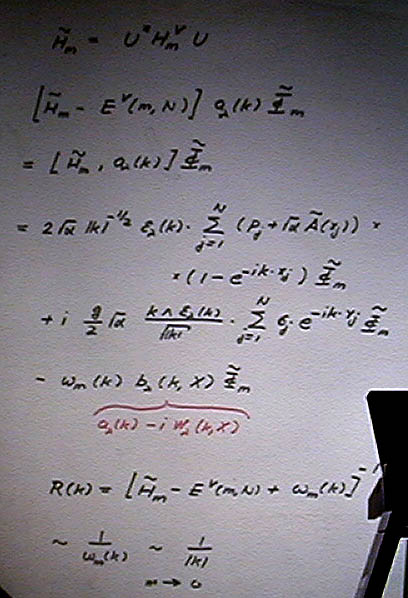 H̃_m = U* H_m^V U
[H̃_m - E^V(m,N)] a_λ(k) Φ̃_m
= [H̃_m, a_λ(k)] Φ̃_m
= 2√α |k|^{-1/2} ε_λ(k) · Σ_{j=1}^{N} (p_j + √α Ã(x_j)) ×
× (1 - e^{-ik·x_j}) Φ̃_m
+ i g/2 √α (k ∧ ε_λ(k))/√|k| · Σ_{j=1}^{N} σ_j e^{-ik·x_j} Φ̃_m
- ω_m(k) b_λ(k, X) Φ̃_m
a_λ(k) - i W_λ(k, X)
R(k) = [H̃_m - E^V(m,N) + ω_m(k)]^{-1}
~ 1/ω_m(k) ~ 1/|k|
m → 0